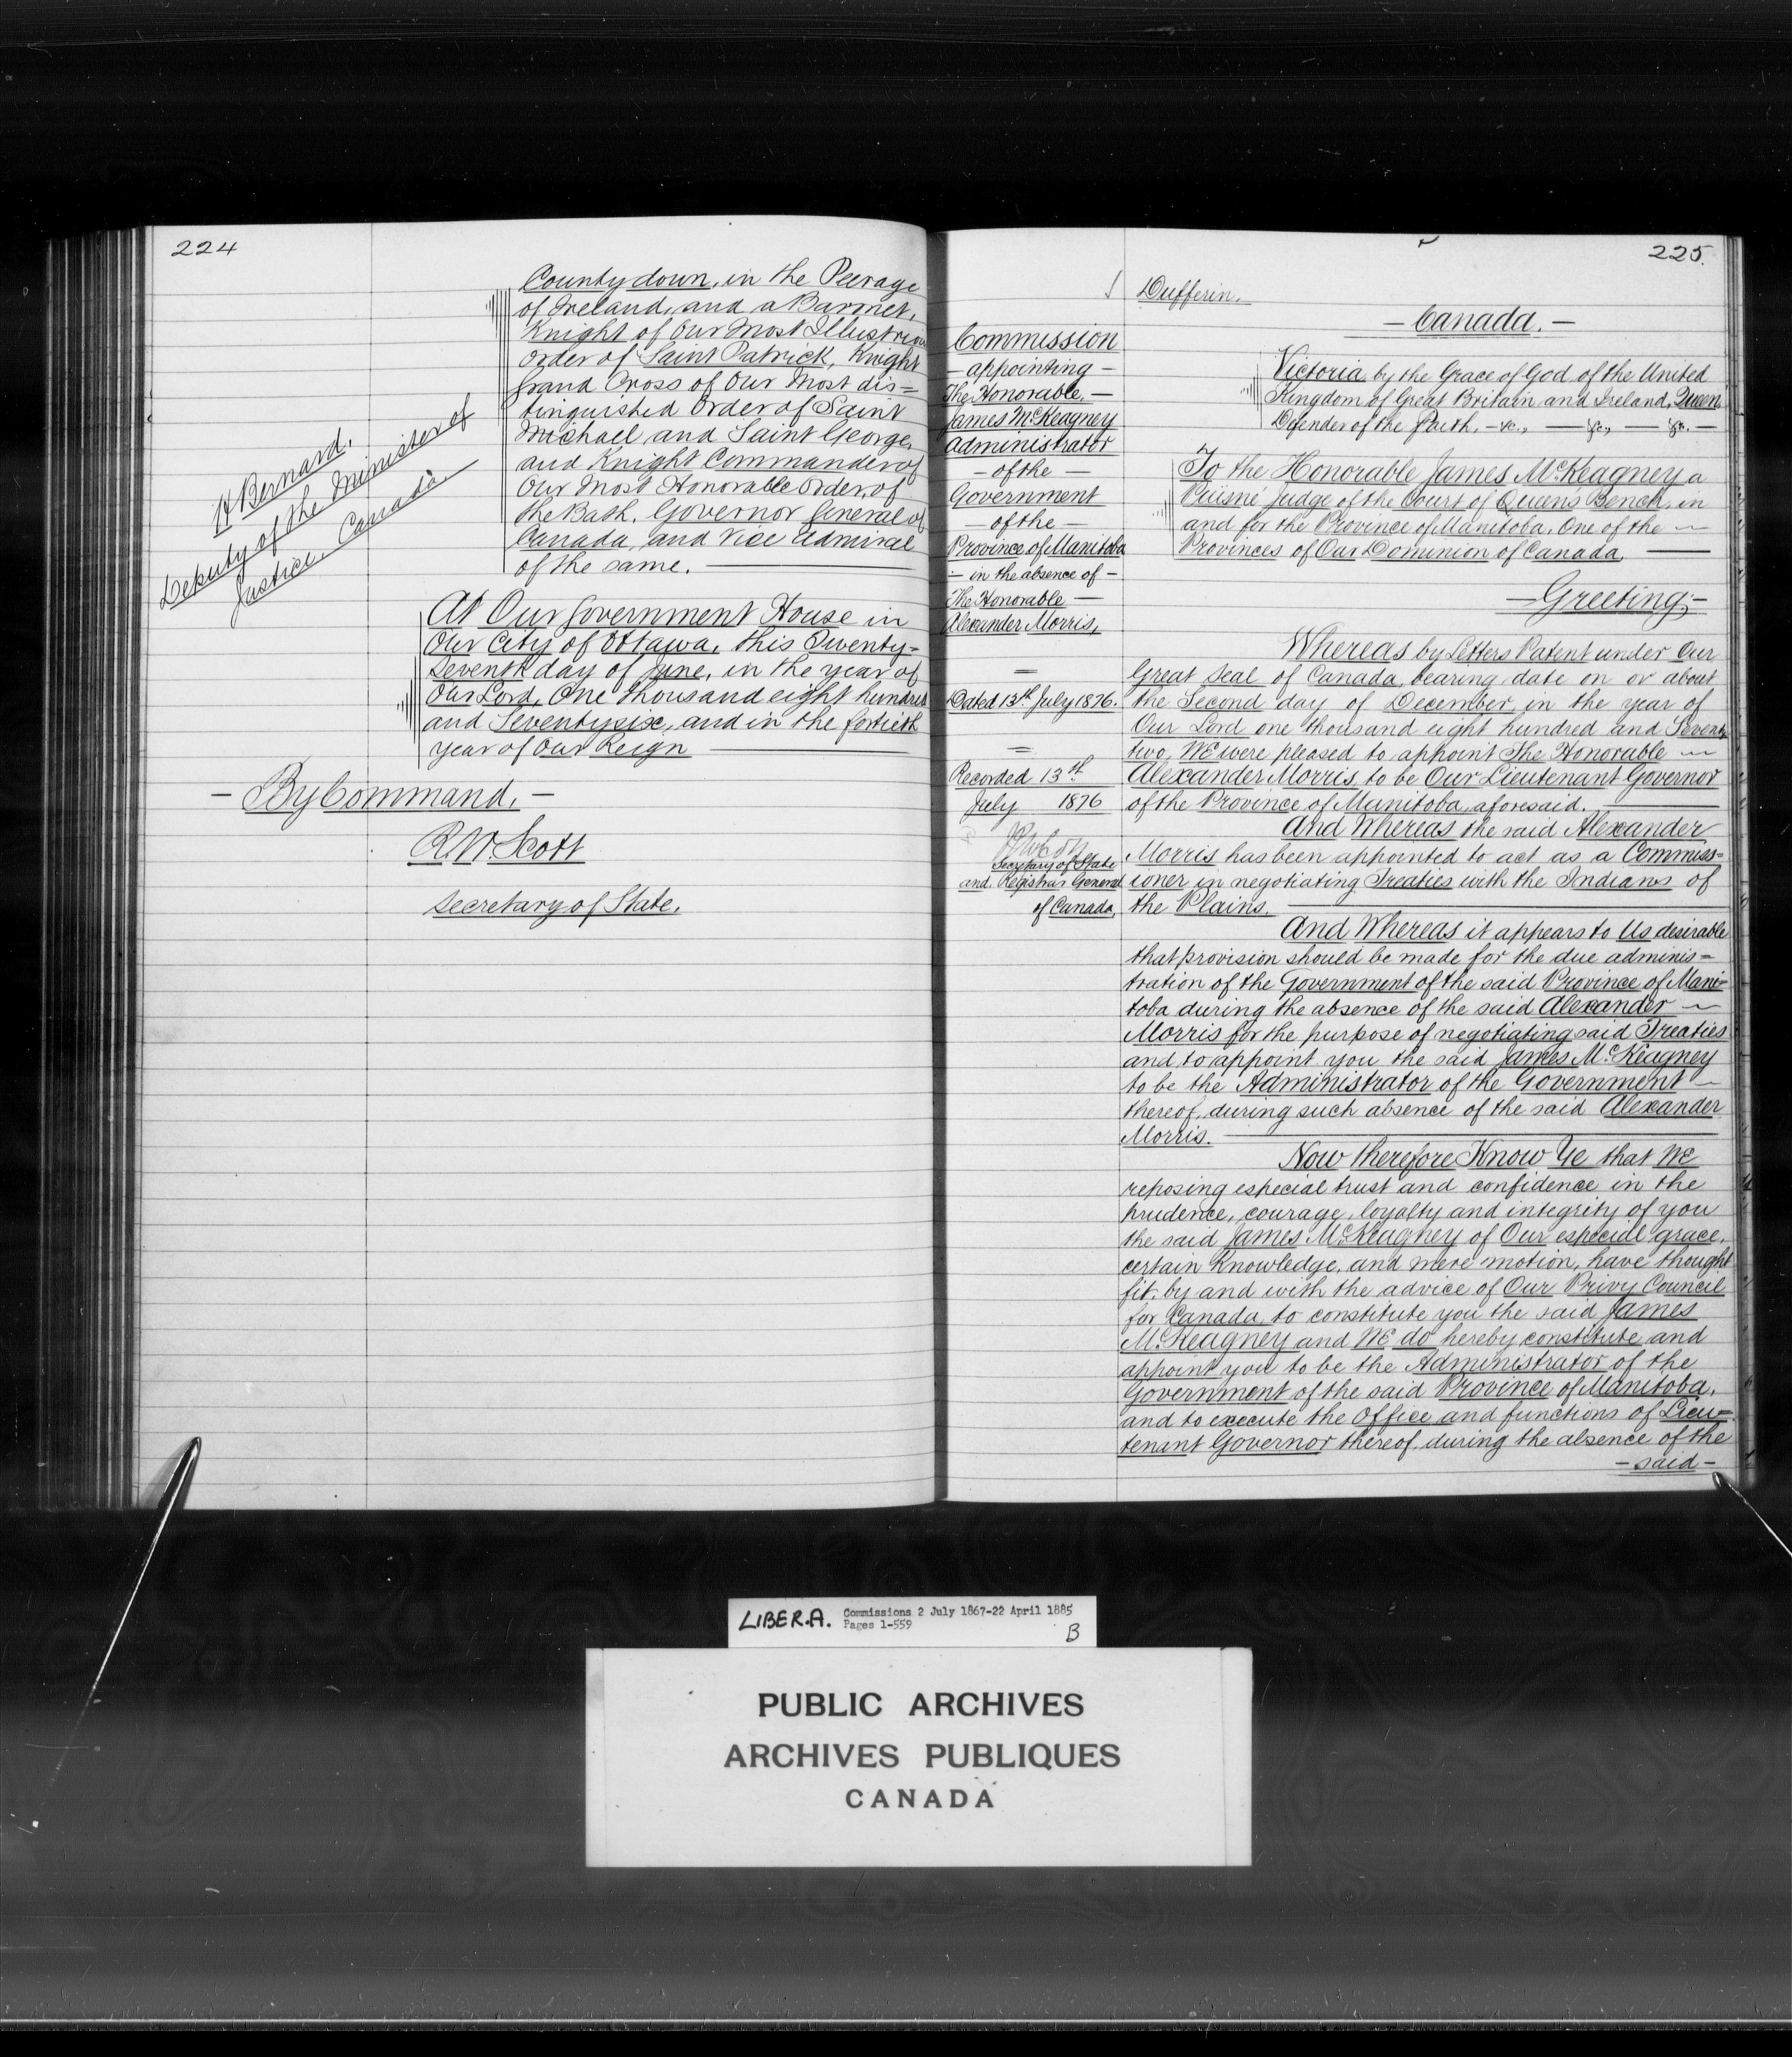 224
County down, in the Peerage
of Ireland, and a Baronet,
Knight of Our Most Illustrious
Order of Saint Patrick, Knight
Grand Cross of Our Most dis=
tinguished Order of Saint
Michael and Saint George,
and Knight Commander of
Our Most Honorable Order of
the Bath. Governor General of
Canada, and Vice Admiral
of the same.
H Bernard.
Deputy of the Minister of
Justice, Canada.
At Our Government House in
Our City of Ottawa, this Twenty-
Seventh day of June, in the year of
Our Lord, One thousand eight hundred
and Seventysix, and in the fortieth
year of Our Reign
- By Command, -
R. W Scott
Secretary of State.
225.
Dufferin.
- Canada. -
Commission
- appointing -
The Honorable -
James McKeagney
Administrator
- of the -
Government
- of the -
Province of Manitoba
- in the absence of -
The Honorable -
Alexander Morris,
Dated 13th July 1876.
Recorded 13th
July 1876
Secretary of State
and Registrar General
of Canada,
Victoria by the Grace of God of the United
Kingdom of Great Britain and Ireland, Queen,
Defender of the Faith, - &c., — &c., — &c. —
To the Honorable James McKeagney a
Puisné Judge of the Court of Queens Bench, in
and for the Province of Manitoba, One of the
Provinces of Our Dominion of Canada,
- Greeting; -
Whereas by Letters Patent under Our
Great Seal of Canada, bearing date on or about
the Second day of December, in the year of
Our Lord one thousand eight hundred and Seventy
two, WE were pleased to appoint The Honorable
Alexander Morris, to be Our Lieutenant Governor
of the Province of Manitoba, aforesaid.
And Whereas the said Alexander
Morris has been appointed to act as a Commiss=
ioner in negotiating Treaties with the Indians of
the Plains.
And Whereas it appears to Us desirable
that provision should be made for the due adminis=
tration of the Government of the said Province of Mani-
toba during the absence of the said Alexander
Morris for the purpose of negotiating said Treaties
and to appoint you the said James McKeagney
to be the Administrator of the Government
thereof, during such absence of the said Alexander
Morris.
Now therefore Know Ye that WE
reposing especial trust and confidence in the
prudence, courage, loyalty and integrity of you
the said James McKeagney of Our especial grace,
certain knowledge, and mere motion, have thought
fit, by and with the advice of Our Privy Council
for Canada, to constitute you the said James
McKeagney and WE do hereby constitute and
appoint you to be the Administrator of the
Government of the said Province of Manitoba,
and to execute the Office and functions of Lieu=
tenant Governor thereof, during the absence of the
- said -
LIBER.A. Commissions 2 July 1867-22 April 1885
Pages 1-559
B
PUBLIC ARCHIVES
ARCHIVES PUBLIQUES
CANADA